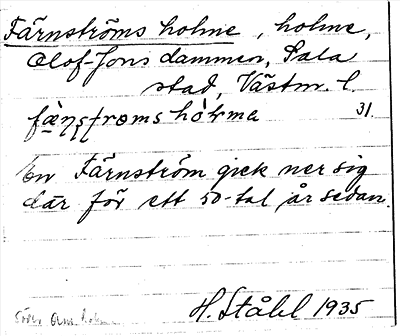 Färnströms holme, holme,
Olof-Jons dammen, Sala
stad, Västm. l.
fä̀ṇṣtrøms hòlma 31.
En Färnström gick ner sig
där för ett 50-tal år sedan.
H. Ståhl 1935